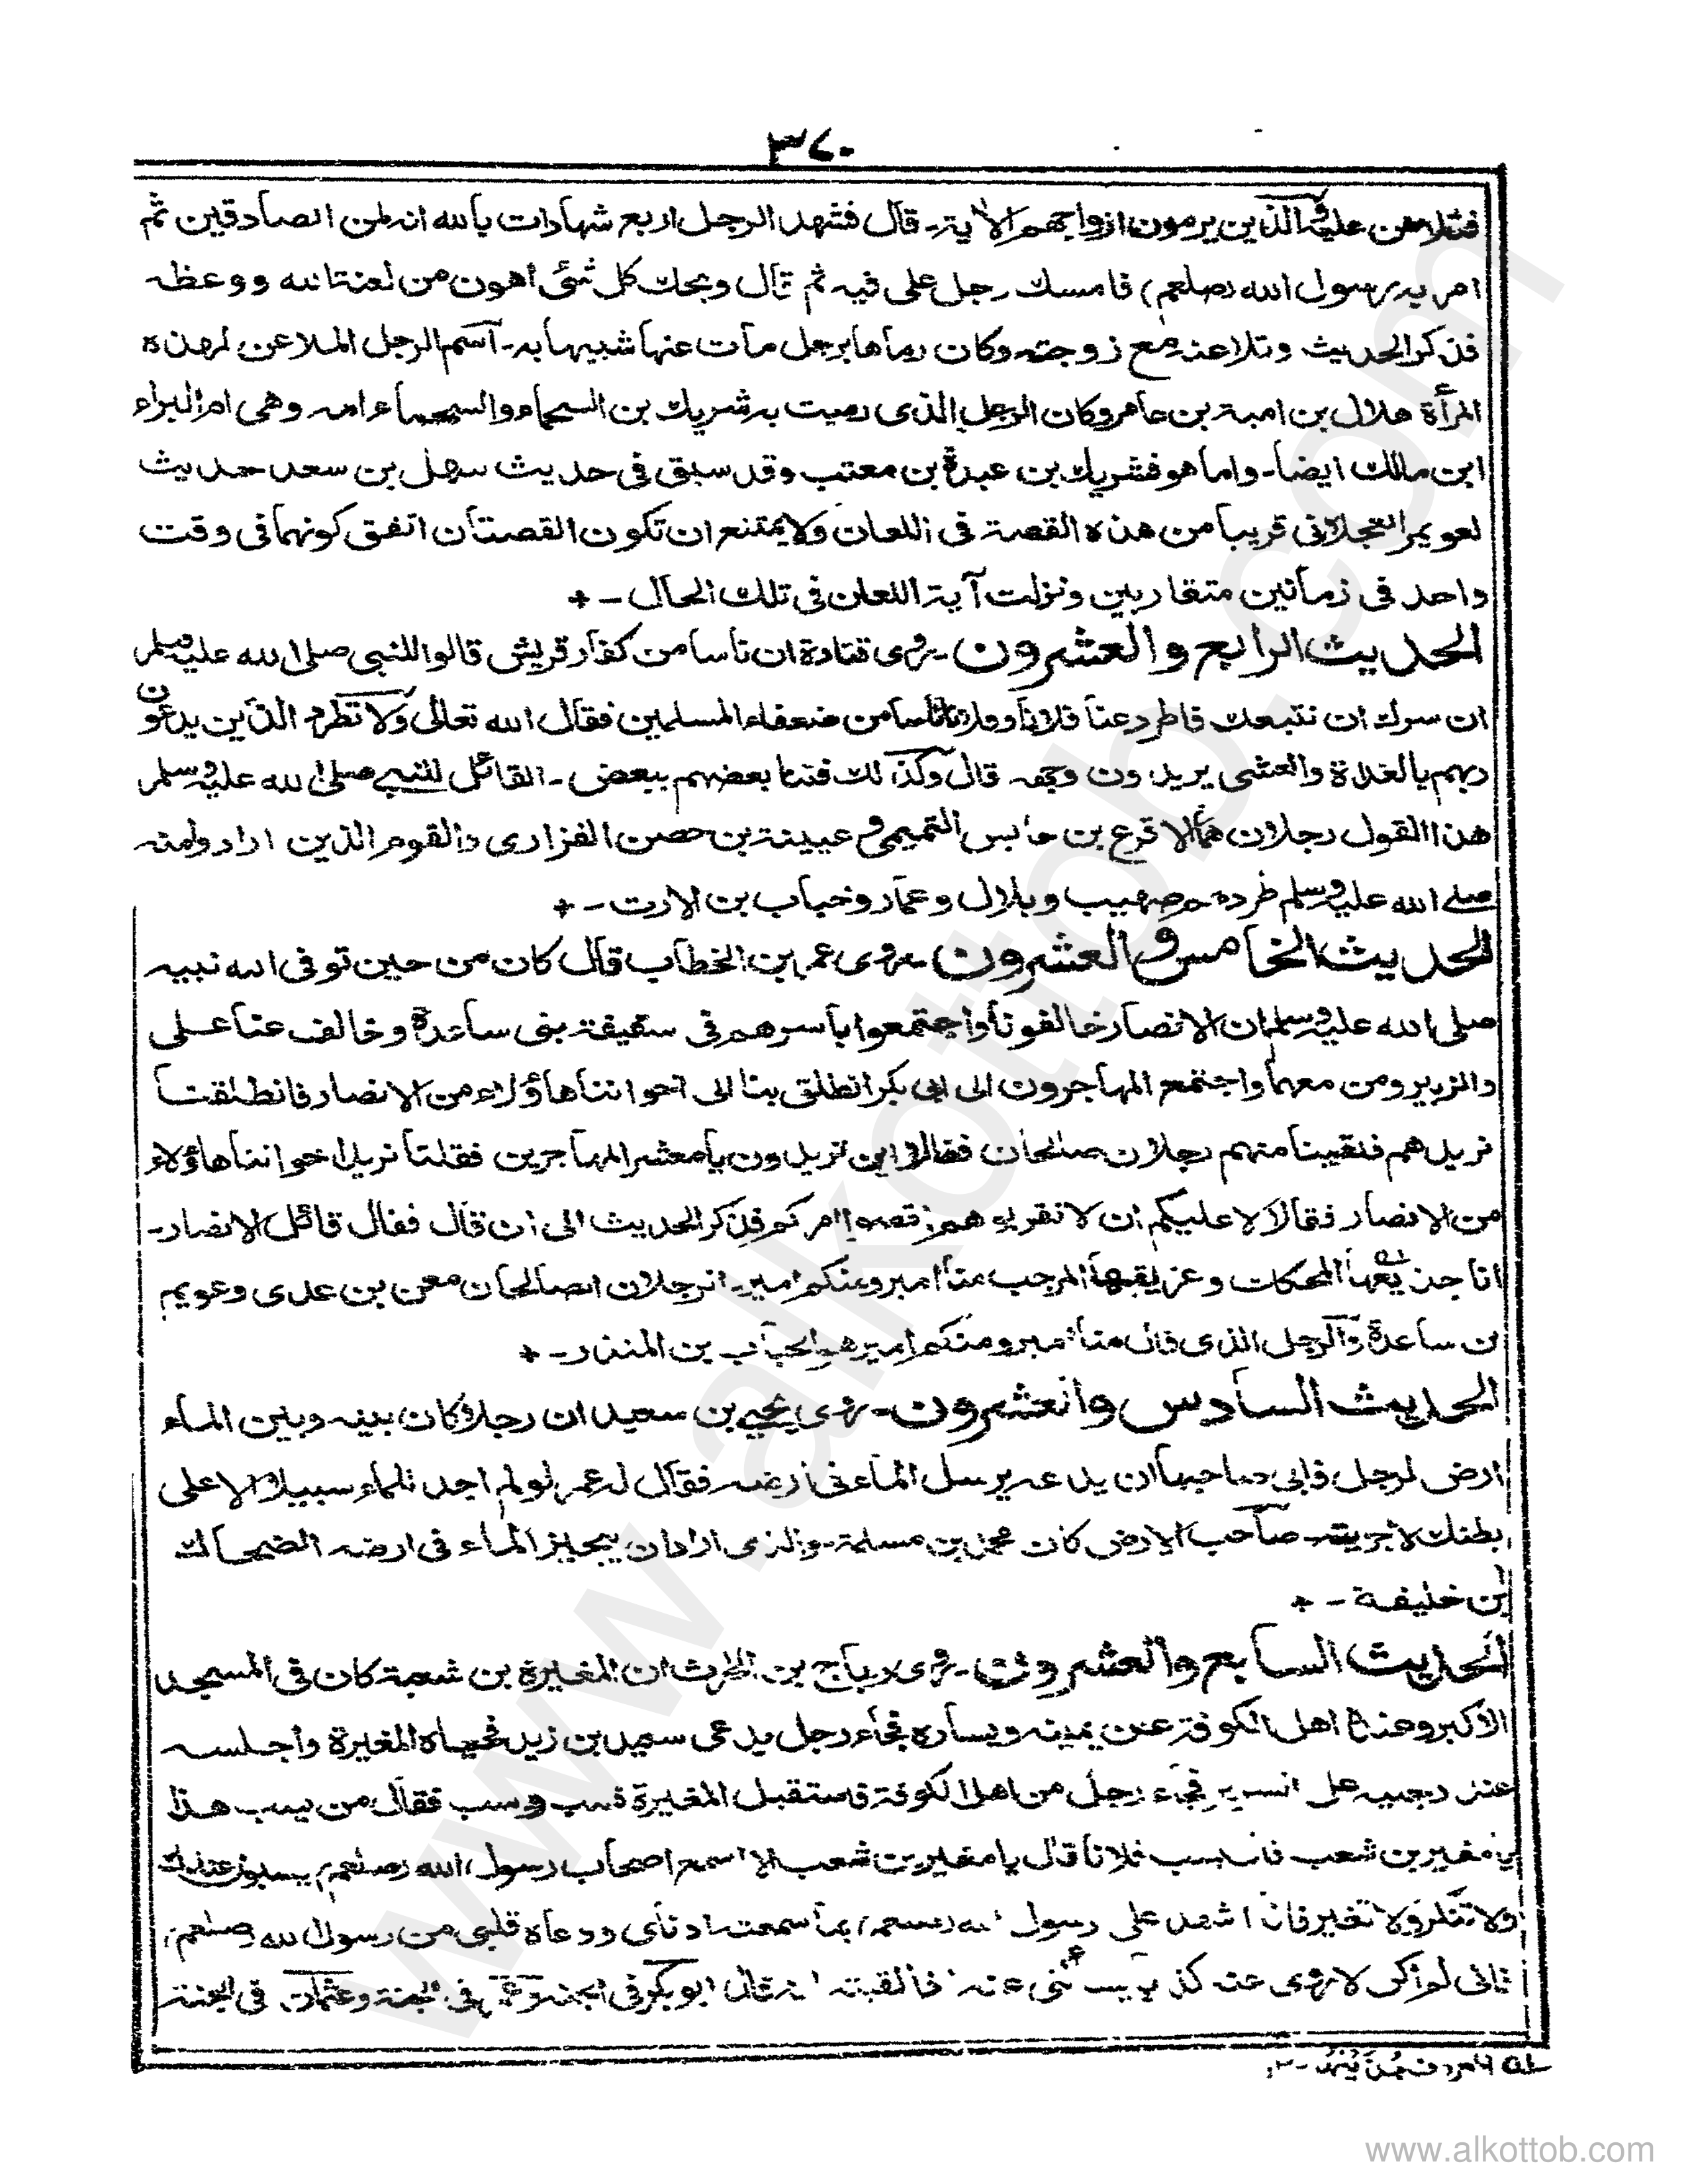 ٣٤٠
فتلاهن عليه والذين يرمون ازواجهم الاية - قال فشهد الرجل اربع شهادات بالله انه لمن الصادقين ثم
امر به رسول الله (صلعم) فامسك رجل على فيه ثم قال ويحك كل شئ اهون من لعنة الله ووعظه
فذكر الحديث وتلاعنه مع زوجته وكان رماها برجل مات عنها شبيها به - اسم الرجل الملاعن لهذه
المرأة هلال بن امية بن عامر وكان الرجل الذى رميت به شريك بن السحماء والسحماء امه وهى ام البراء
ابن مالك ايضا - واما هو فشريك بن عبدة بن معتب وقد سبق فى حديث سهل بن سعد حديث
لعويمر العجلانى قريبا من هذه القصة فى اللعان ولا يمتنع ان تكون القصتان اتفق كونهما فى وقت
واحد فى زمانين متقاربين ونزلت آية اللعان فى تلك الحال - +
الحديث الرابع والعشرون - روى قتادة ان ناسا من كفار قريش قالوا للنبى صلى الله عليه وسلم
ان سرك ان نتبعك فاطرد عنا فلانا وفلانا ناسا من ضعفاء المسلمين فقال الله تعالى ولا تطرد الذين يدعون
ربهم بالغداة والعشى يريدون وجهه قال وكذلك فتنا بعضهم ببعض - القائل للنبى صلى الله عليه وسلم
هذا القول رجلان هما الاقرع بن حابس التميمى وعيينة بن حصن الفزارى والقوم الذين ارادوا منه
صلى الله عليه وسلم طرده هم صهيب وبلال وعمار وخباب بن الارت - +
الحديث الخامس والعشرون - روى عمر بن الخطاب قال كان من حين توفى الله نبيه
صلى الله عليه وسلم ان الانصار خالفونا واجتمعوا باسرهم فى سقيفة بنى ساعدة وخالف عنا على
والزبير ومن معهما واجتمع المهاجرون الى ابى بكر انطلق بنا الى اخواننا هاؤلاء من الانصار فانطلقنا
نريدهم فلقينا منهم رجلان صالحان فقالا اين تريدون يا معشر المهاجرين فقلنا نريد اخواننا هاؤلاء
من الانصار فقالا لا عليكم ان لا تقربوهم اقضوا امركم فذكر الحديث الى ان قال فقال قائل الانصار -
انا جذيعها المحكات وعزيقبها المرجب منا امير ومنكم امير - الرجلان الصالحان معن بن عدى وعويم
بن ساعدة والرجل الذى قال منا امير ومنكم امير هو الحباب بن المنذر - +
الحديث السادس والعشرون - روى يحيى بن سعيد ان رجلا كان بينه وبين الماء
ارض لرجل فابى صاحبها ان يدعه يرسل الماء فى ارضه فقال له عمر لو لم اجد للماء سبيلا الا على
بطنك لاجريته - صاحب الارض كان محمد بن مسلمة - والذى اراد ان يجيز الماء فى ارضه الضحاك
ابن خليفة - +
الحديث السابع والعشرون - روى رباح بن الحرث ان المغيرة بن شعبة كان فى المسجد
الاكبر وعنده اهل الكوفة عن يمينه ويساره فجاء رجل يدعى سعيد بن زيد فحياه المغيرة واجلسه
عند رجليه على السرير فجاء رجل من اهل الكوفة فاستقبل المغيرة فسب وسب فقال من يسب هذا
يا مغير بن شعب قال يسب فلانا قال يا مغير بن شعب الا اسمع اصحاب رسول الله (صلعم) يسبون عندك
ولا تنكر ولا تغير فانا اشهد على رسول الله (صلعم) بما سمعت اذناى ووعاه قلبى من رسول الله (صلعم)
فانى لم اكن لاروى عنه كذبا يسألنى عنه اذا لقيته انه قال ابو بكر فى الجنة وعمر فى الجنة وعثمان فى الجنة
www.alkottob.com
www.alkottob.com